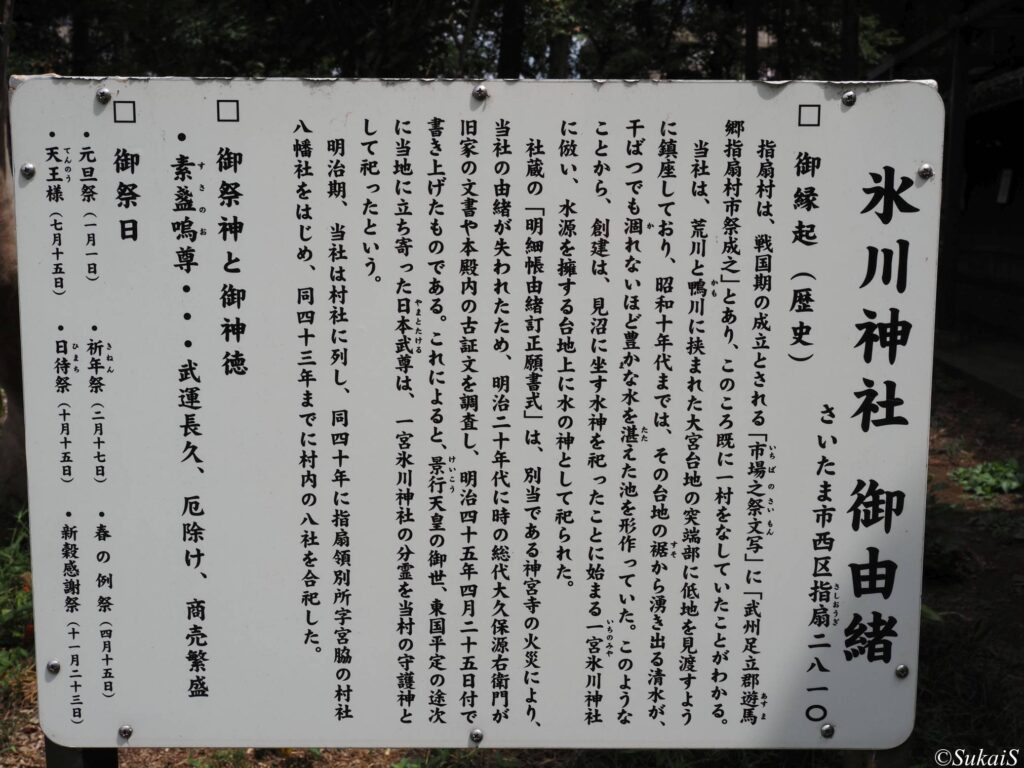 氷川神社 御由緒
さいたま市西区指扇二八一〇
□ 御縁起(歴史)
指扇村は、戦国期の成立とされる「市場之祭文写」に「武州足立郡遊馬
郷指扇村市祭成之」とあり、このころ既に一村をなしていたことがわかる。
当社は、荒川と鴨川に挟まれた大宮台地の突端部に低地を見渡すよう
に鎮座しており、昭和十年代までは、その台地の裾から湧き出る清水が、
干ばつでも涸れないほど豊かな水を湛えた池を形作っていた。このような
ことから、創建は、見沼に坐す水神を祀ったことに始まる一宮氷川神社
に倣い、水源を擁する台地上に水の神として祀られた。
社蔵の「明細帳由緒訂正願書式」は、別当である神宮寺の火災により、
当社の由緒が失われたため、明治二十年代に時の総代大久保源右衛門が
旧家の文書や本殿内の古証文を調査し、明治四十五年四月二十五日付で
書き上げたものである。これによると、景行天皇の御世、東国平定の途次
に当地に立ち寄った日本武尊は、一宮氷川神社の分霊を当村の守護神と
して祀ったという。
明治期、当社は村社に列し、同四十年に指扇領別所字宮脇の村社
八幡社をはじめ、同四十三年までに村内の八社を合祀した。
□ 御祭神と御神徳
・素盞嗚尊・・・武運長久、厄除け、商売繁盛
□ 御祭日
・元旦祭(一月一日) ・祈年祭(二月十七日) ・春の例祭(四月十五日)
・天王様(七月十五日) ・日待祭(十月十五日) ・新穀感謝祭(十一月二十三日)
©SukaiS